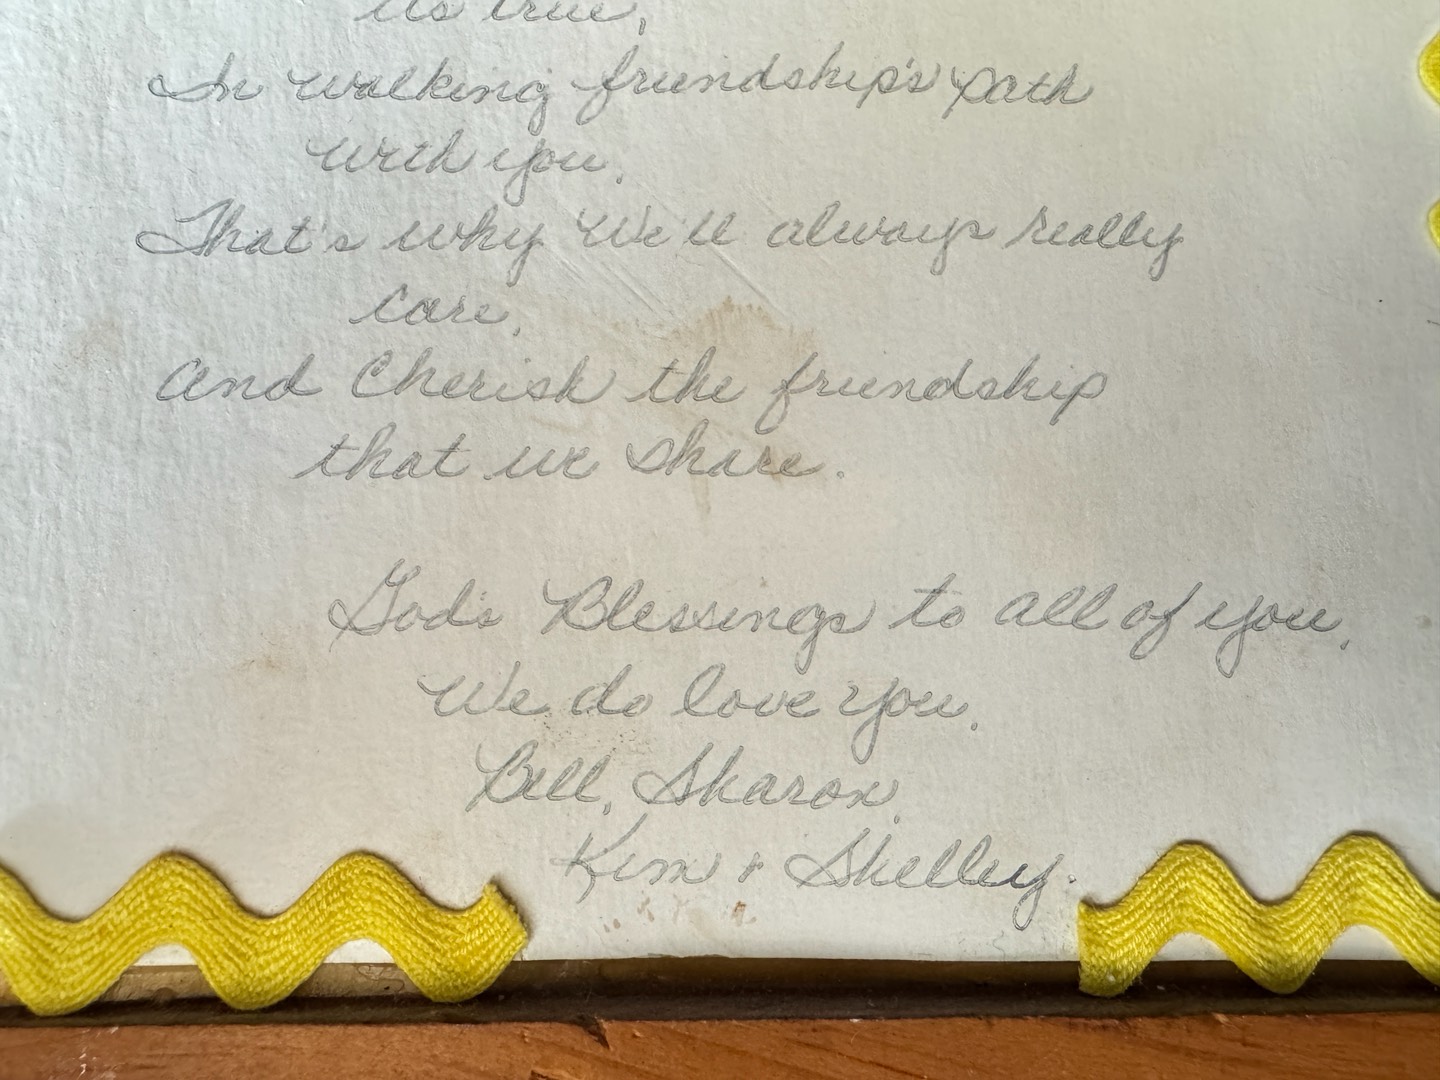 its true,
In walking friendship's path
with you.
That's why We'll always really
care,
and Cherish the friendship
that we share.
God's Blessings to all of you,
We do love you.
Bill, Sharon,
Kim + Shelley.